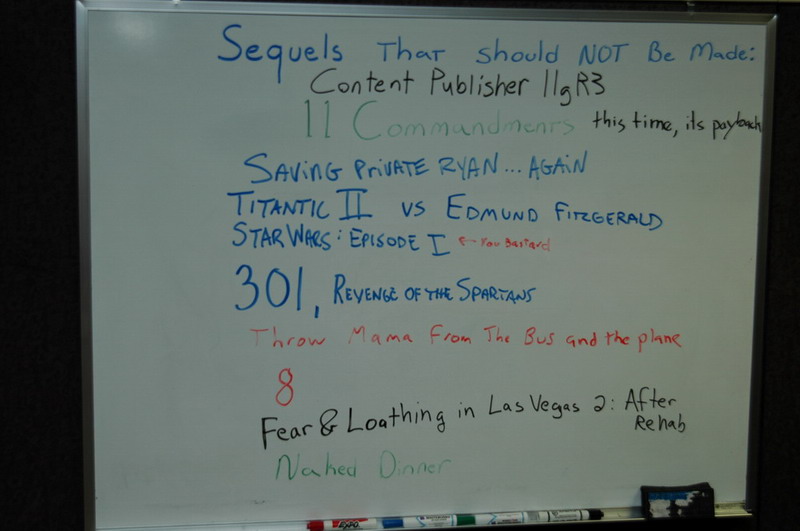 Sequels That should NOT Be Made:
Content Publisher 11gR3
11 Commandments this time, its payback
Saving Private Ryan... Again
Titantic II vs Edmund Fitzgerald
Star Wars: Episode I ← You Bastard
301, Revenge of the Spartans
Throw Mama From The Bus and the plane
8
Fear & Loathing in Las Vegas 2: After
Rehab
Naked Dinner
EXPO